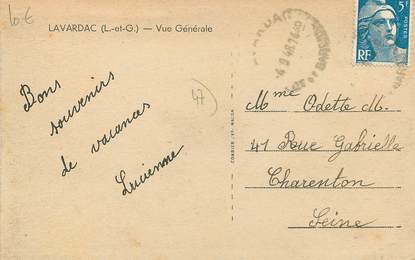 10 €
LAVARDAC (L.-et-G.) — Vue Générale
Bons
souvenirs
de vacances
Lucienne
47
COMBIER IMP. MACON
5F
RF
POSTES
Mme Odette M.
41 Rue Gabrielle
Charenton
Seine